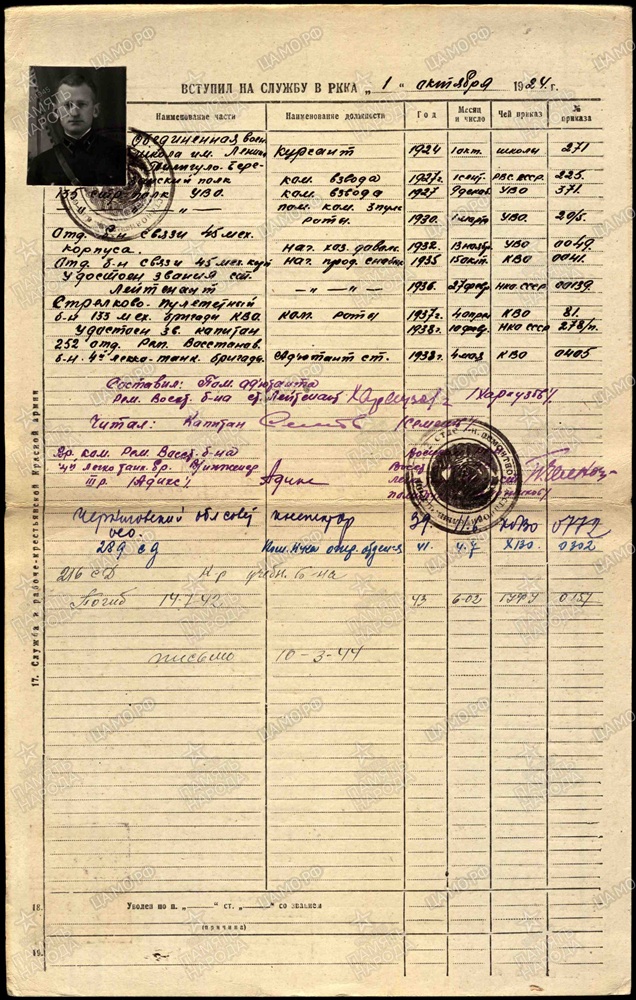 ВСТУПИЛ НА СЛУЖБУ В РККА „1" октября 1924 г.
Наименование части Наименование должности Год Месяц и число Чей приказ № приказа
Объединенная воен.
школа им. Ленина курсант 1924 1 окт. школы 271
полк ком. взвода 1927г. 1 сент. РВС.СССР. 225.
135 стр. полк УВО. ком. взвода 1927 9 декаб. УВО 371.
— „ — пом. ком. пуль.
роты. 1930. 1 март УВО. 20/5.
Отд. б-н связи 45 мех.
корпуса. нач. хоз. довол. 1932 13 ноябр. УВО 0049.
Отд. б-н связи 45 мех. кор. нач. прод. снабж. 1935 15 окт. КВО 0041.
Удостоен звания ст.
Лейтенант — „ — „ — 1936. 27 фев. НКО.СССР 00139.
Стрелково-пулеметный
б-н 133 мех. бригады КВО. ком. роты 1937г. 4 апр. КВО 81.
Удостоен зв. капитан 1938г. 10 фев. НКО СССР 278/п.
252 отд. Рем. Восстанов.
б-н. 4й легко-танк. бригады. Адъютант ст. 1938г. 4 мая КВО 0405
Составил: Пом. адъютанта
Рем. Восст. б-на ст. Лейтенант
Читал: Капитан
Вр. ком. Рем. Восст. б-на
4й легкотанк. бр. Воинженер
/Адикс/ Адикс
Черниговский обл. совет инспектор 39. КОВО 0772
осо.
289 сд Пом. Нач. опер. отделен. 41. 4.7 ХВО. 0302
216 сд К-р учебн. б-на
Погиб 14-7-42 43 6-02 ГУФУ 0157
письмо 10-3-44
17. Служба в рабоче-крестьянской Красной армии
18. Уволен по п. „——" ст. „——" со льгот
(причина)
19.
ПАМЯТЬ НАРОДА
ЦАМО РФ